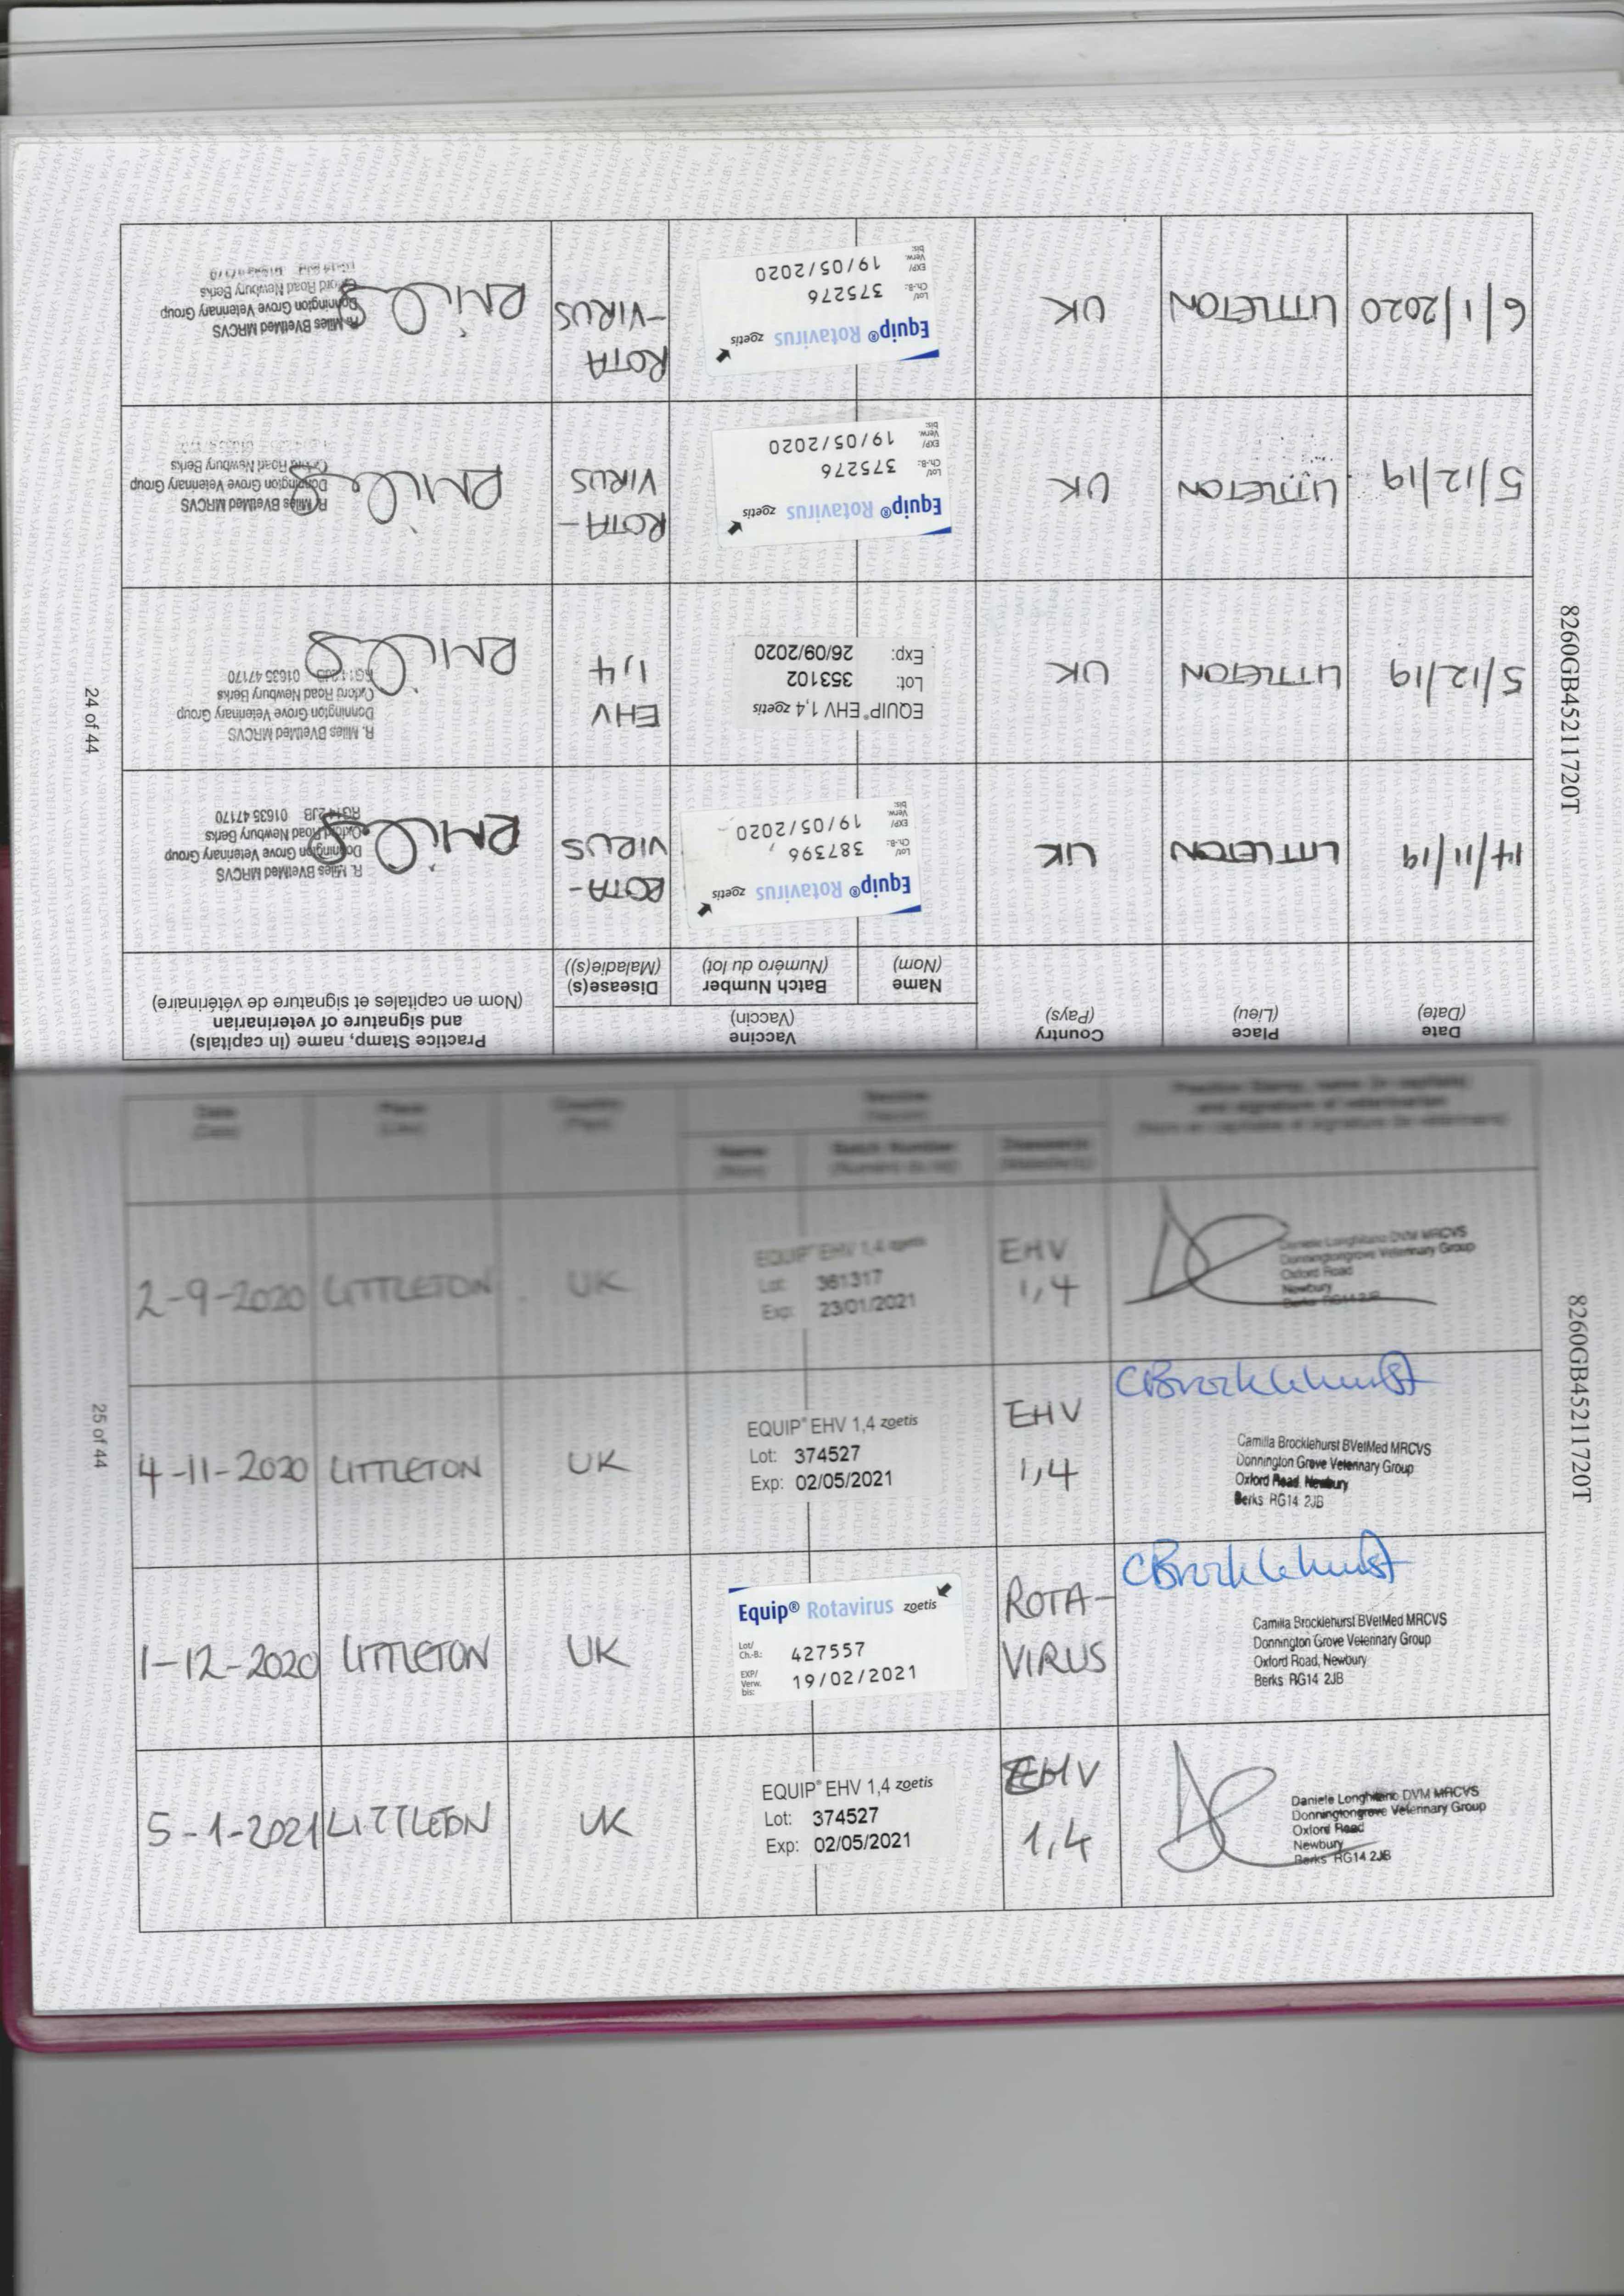 8260GB45211720T
24 of 44
Date
(Date)
Place
(Lieu)
Country
(Pays)
Vaccine
(Vaccin)
Name
(Nom)
Batch Number
(Numéro du lot)
Disease(s)
(Maladie(s))
Practice Stamp, name (in capitals)
and signature of veterinarian
(Nom en capitales et signature de vétérinaire)
14/11/19
LITTLETON
UK
Equip® Rotavirus zoetis
Lot/
Ch.-B.:
387396
EXP/
Verw.
bis:
19/05/2020
ROTA-
VIRUS
RMiles
R. Miles BVetMed MRCVS
Donnington Grove Veterinary Group
Oxford Road Newbury Berks
RG14 2JB 01635 47170
5/12/19
LITTLETON
UK
EQUIP® EHV 1,4 zoetis
Lot: 353102
Exp: 26/09/2020
EHV
1,4
R. Miles BVetMed MRCVS
Donnington Grove Veterinary Group
Oxford Road Newbury Berks
RG14 2JB 01635 47170
RMiles
5/12/19
LITTLETON
UK
Equip® Rotavirus zoetis
Lot/
Ch.-B.:
375276
EXP/
Verw.
bis:
19/05/2020
ROTA-
VIRUS
RMiles
R. Miles BVetMed MRCVS
Donnington Grove Veterinary Group
Oxford Road Newbury Berks
6/1/2020
LITTLETON
UK
Equip® Rotavirus zoetis
Lot/
Ch.-B.:
375276
EXP/
Verw.
bis:
19/05/2020
ROTA
-VIRUS
RMiles
R. Miles BVetMed MRCVS
Donnington Grove Veterinary Group
Oxford Road Newbury Berks
8260GB45211720T
25 of 44
Date
(Date)
Place
(Lieu)
Country
(Pays)
Vaccine
(Vaccin)
Name
(Nom)
Batch Number
(Numéro du lot)
Disease(s)
(Maladie(s))
Practice Stamp, name (in capitals)
and signature of veterinarian
(Nom en capitales et signature de vétérinaire)
2-9-2020
LITTLETON
UK
EQUIP® EHV 1,4 zoetis
Lot: 361317
Exp: 23/01/2021
EHV
1,4
Daniele Longhitano DVM MRCVS
Donningtongrove Veterinary Group
Oxford Road
Newbury
Berks RG14 2JB
4-11-2020
LITTLETON
UK
EQUIP® EHV 1,4 zoetis
Lot: 374527
Exp: 02/05/2021
EHV
1,4
CBrocklehurst
Camilla Brocklehurst BVetMed MRCVS
Donnington Grove Veterinary Group
Oxford Road, Newbury
Berks RG14 2JB
1-12-2020
LITTLETON
UK
Equip® Rotavirus zoetis
Lot/
Ch.-B.:
427557
EXP/
Verw.
bis:
19/02/2021
ROTA-
VIRUS
CBrocklehurst
Camilla Brocklehurst BVetMed MRCVS
Donnington Grove Veterinary Group
Oxford Road, Newbury
Berks RG14 2JB
5-1-2021
LITTLETON
UK
EQUIP® EHV 1,4 zoetis
Lot: 374527
Exp: 02/05/2021
EHV
1,4
Daniele Longhitano DVM MRCVS
Donningtongrove Veterinary Group
Oxford Road
Newbury
Berks RG14 2JB